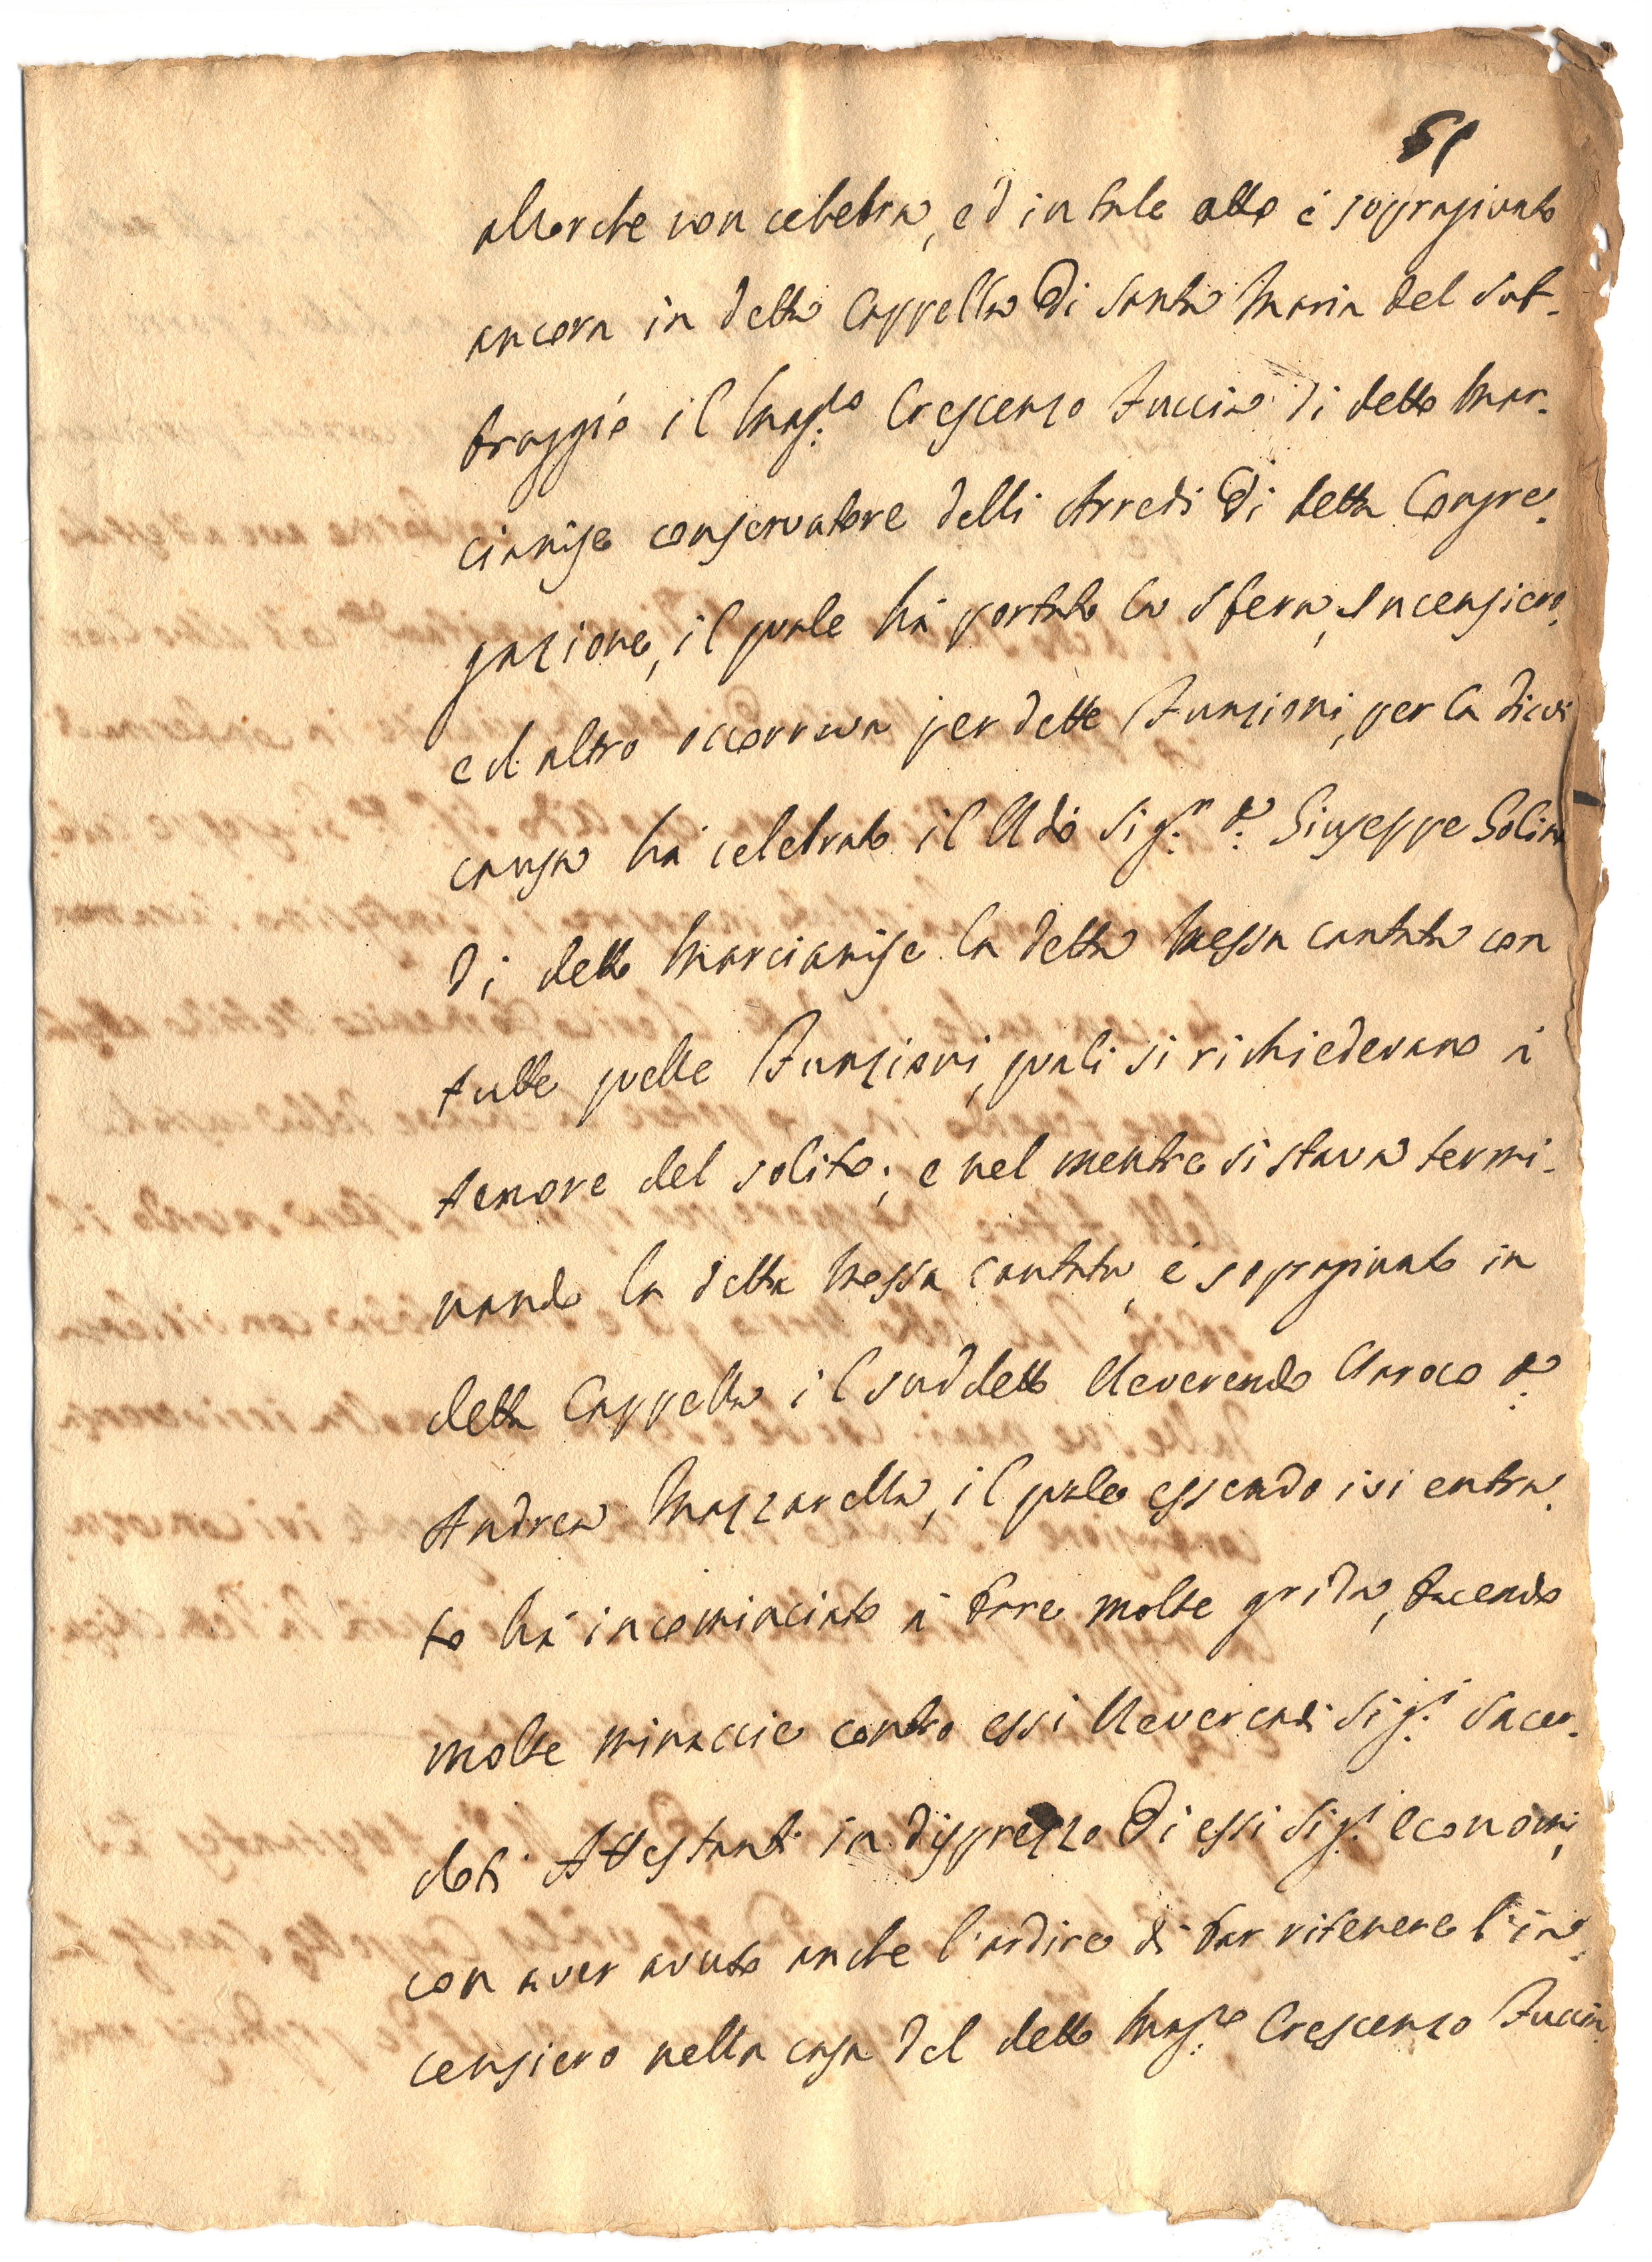 51
allorche non celebra, ed in tale atto è sopragiunto
ancora in detta Cappella di Santa Maria del Suf-
fraggio il Mag.co Crescenzo Fuccia di detto Mar-
cianise conservatore delli Arredi di detta Congre-
gazione, il quale hà portato la sfera, Incensiero,
ed altro occorreva per dette Funzioni, per la di cui
causa hà celebrato il Rdo Sig.r D. Giuseppe Golin
di detto Marcianise la detta Messa cantata con
tutte quelle Funzioni, quali si richiedevano à
tenore del solito; e nel mentre si stava termi-
nando la detta Messa cantata, è sopragiunto in
detta Cappella il suddetto Reverendo Paroco D.
Andrea Mazzarella, il quale essendo ivi entra-
to hà incominciato à fare molte grida, facendo
molte minaccie contro essi Reverendi Sig.i Sacer-
doti Attestanti in disprezzo di essi Sig.i Economi,
con aver avuto anche l'ardire di far ritenere l'in-
censiero nella casa del detto Mag.co Crescenzo Fuccia